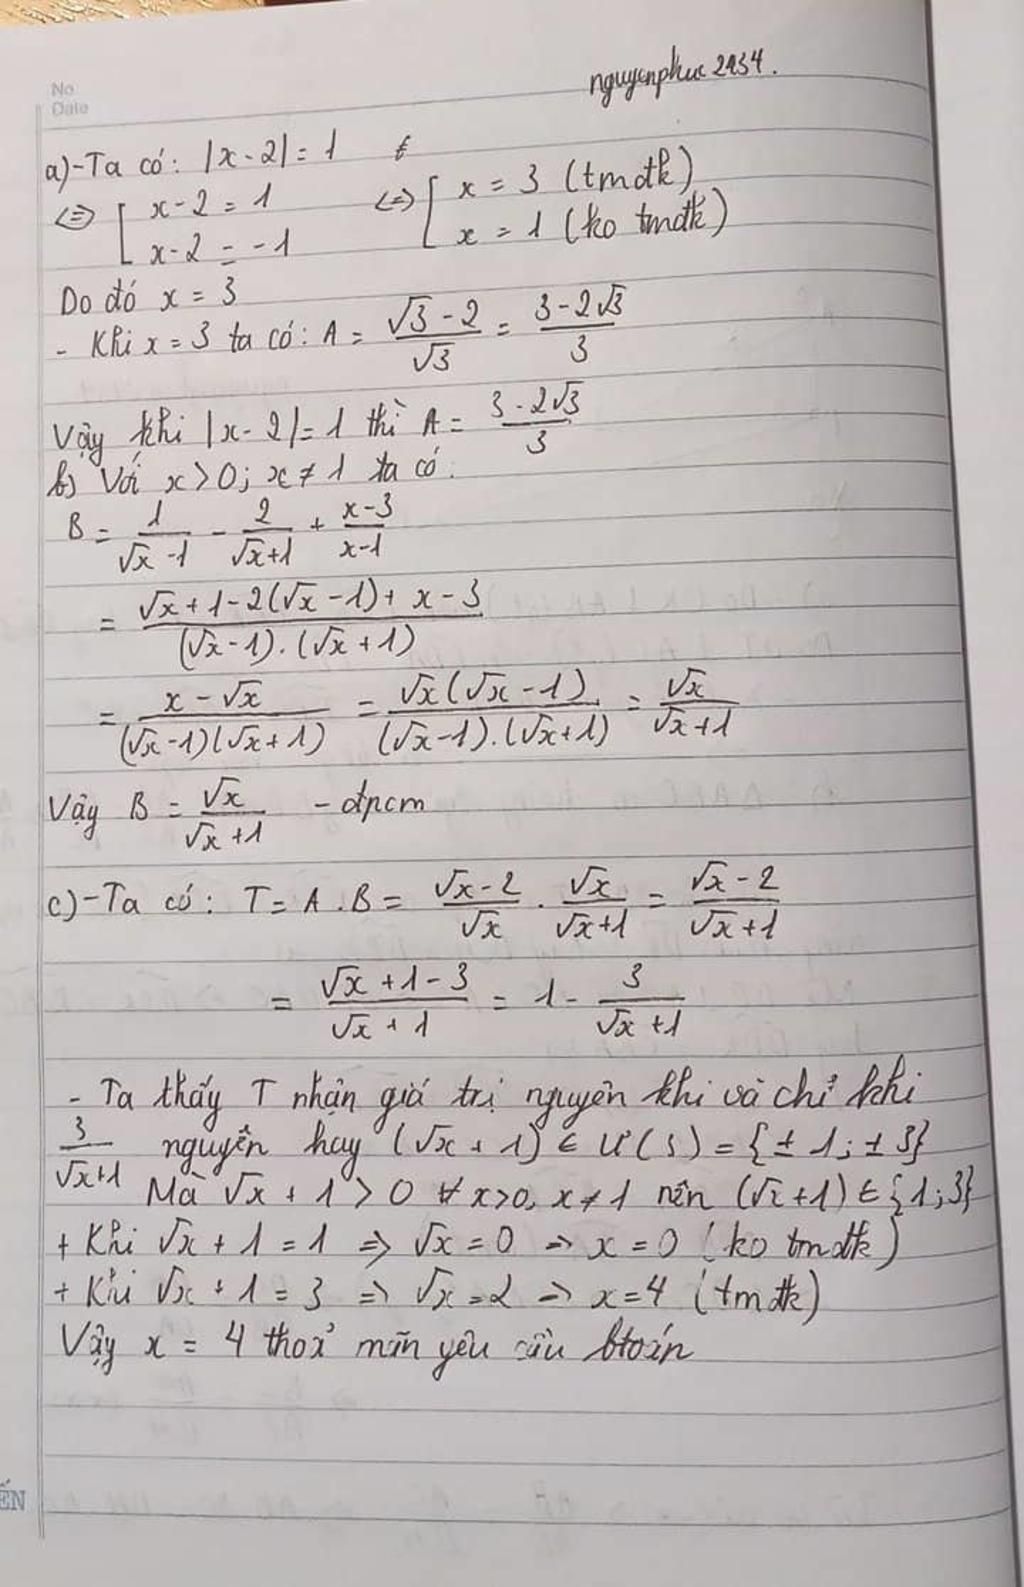 nguyenphuc2434.
No
Date
a)-Ta có: |x-2| = 1
<=> [ x-2 = 1 <=> [ x = 3 (tmđk)
x-2 = -1 x = 1 (ko tmđk)
Do đó x = 3
- Khi x = 3 ta có: A = (√3 - 2)/√3 = (3 - 2√3)/3
Vậy khi |x-2| = 1 thì A = (3 - 2√3)/3
b) Với x > 0; x ≠ 1 ta có:
B = 1/(√x - 1) - 2/(√x + 1) + (x - 3)/(x - 1)
= (√x + 1 - 2(√x - 1) + x - 3)/((√x - 1).(√x + 1))
= (x - √x)/((√x - 1)(√x + 1)) = (√x(√x - 1))/((√x - 1).(√x + 1)) = √x/(√x + 1)
Vậy B = √x/(√x + 1) - đpcm
c)-Ta có: T = A.B = (√x - 2)/√x . √x/(√x + 1) = (√x - 2)/(√x + 1)
= (√x + 1 - 3)/(√x + 1) = 1 - 3/(√x + 1)
- Ta thấy T nhận giá trị nguyên khi và chỉ khi
3/(√x + 1) nguyên hay (√x + 1) ∈ Ư(3) = {± 1; ± 3}
Mà √x + 1 > 0 ∀ x > 0, x ≠ 1 nên (√x + 1) ∈ {1; 3}
+ Khi √x + 1 = 1 => √x = 0 => x = 0 (ko tmđk)
+ Khi √x + 1 = 3 => √x = 2 => x = 4 (tmđk)
Vậy x = 4 thoả mãn yêu cầu btoán
ẾN